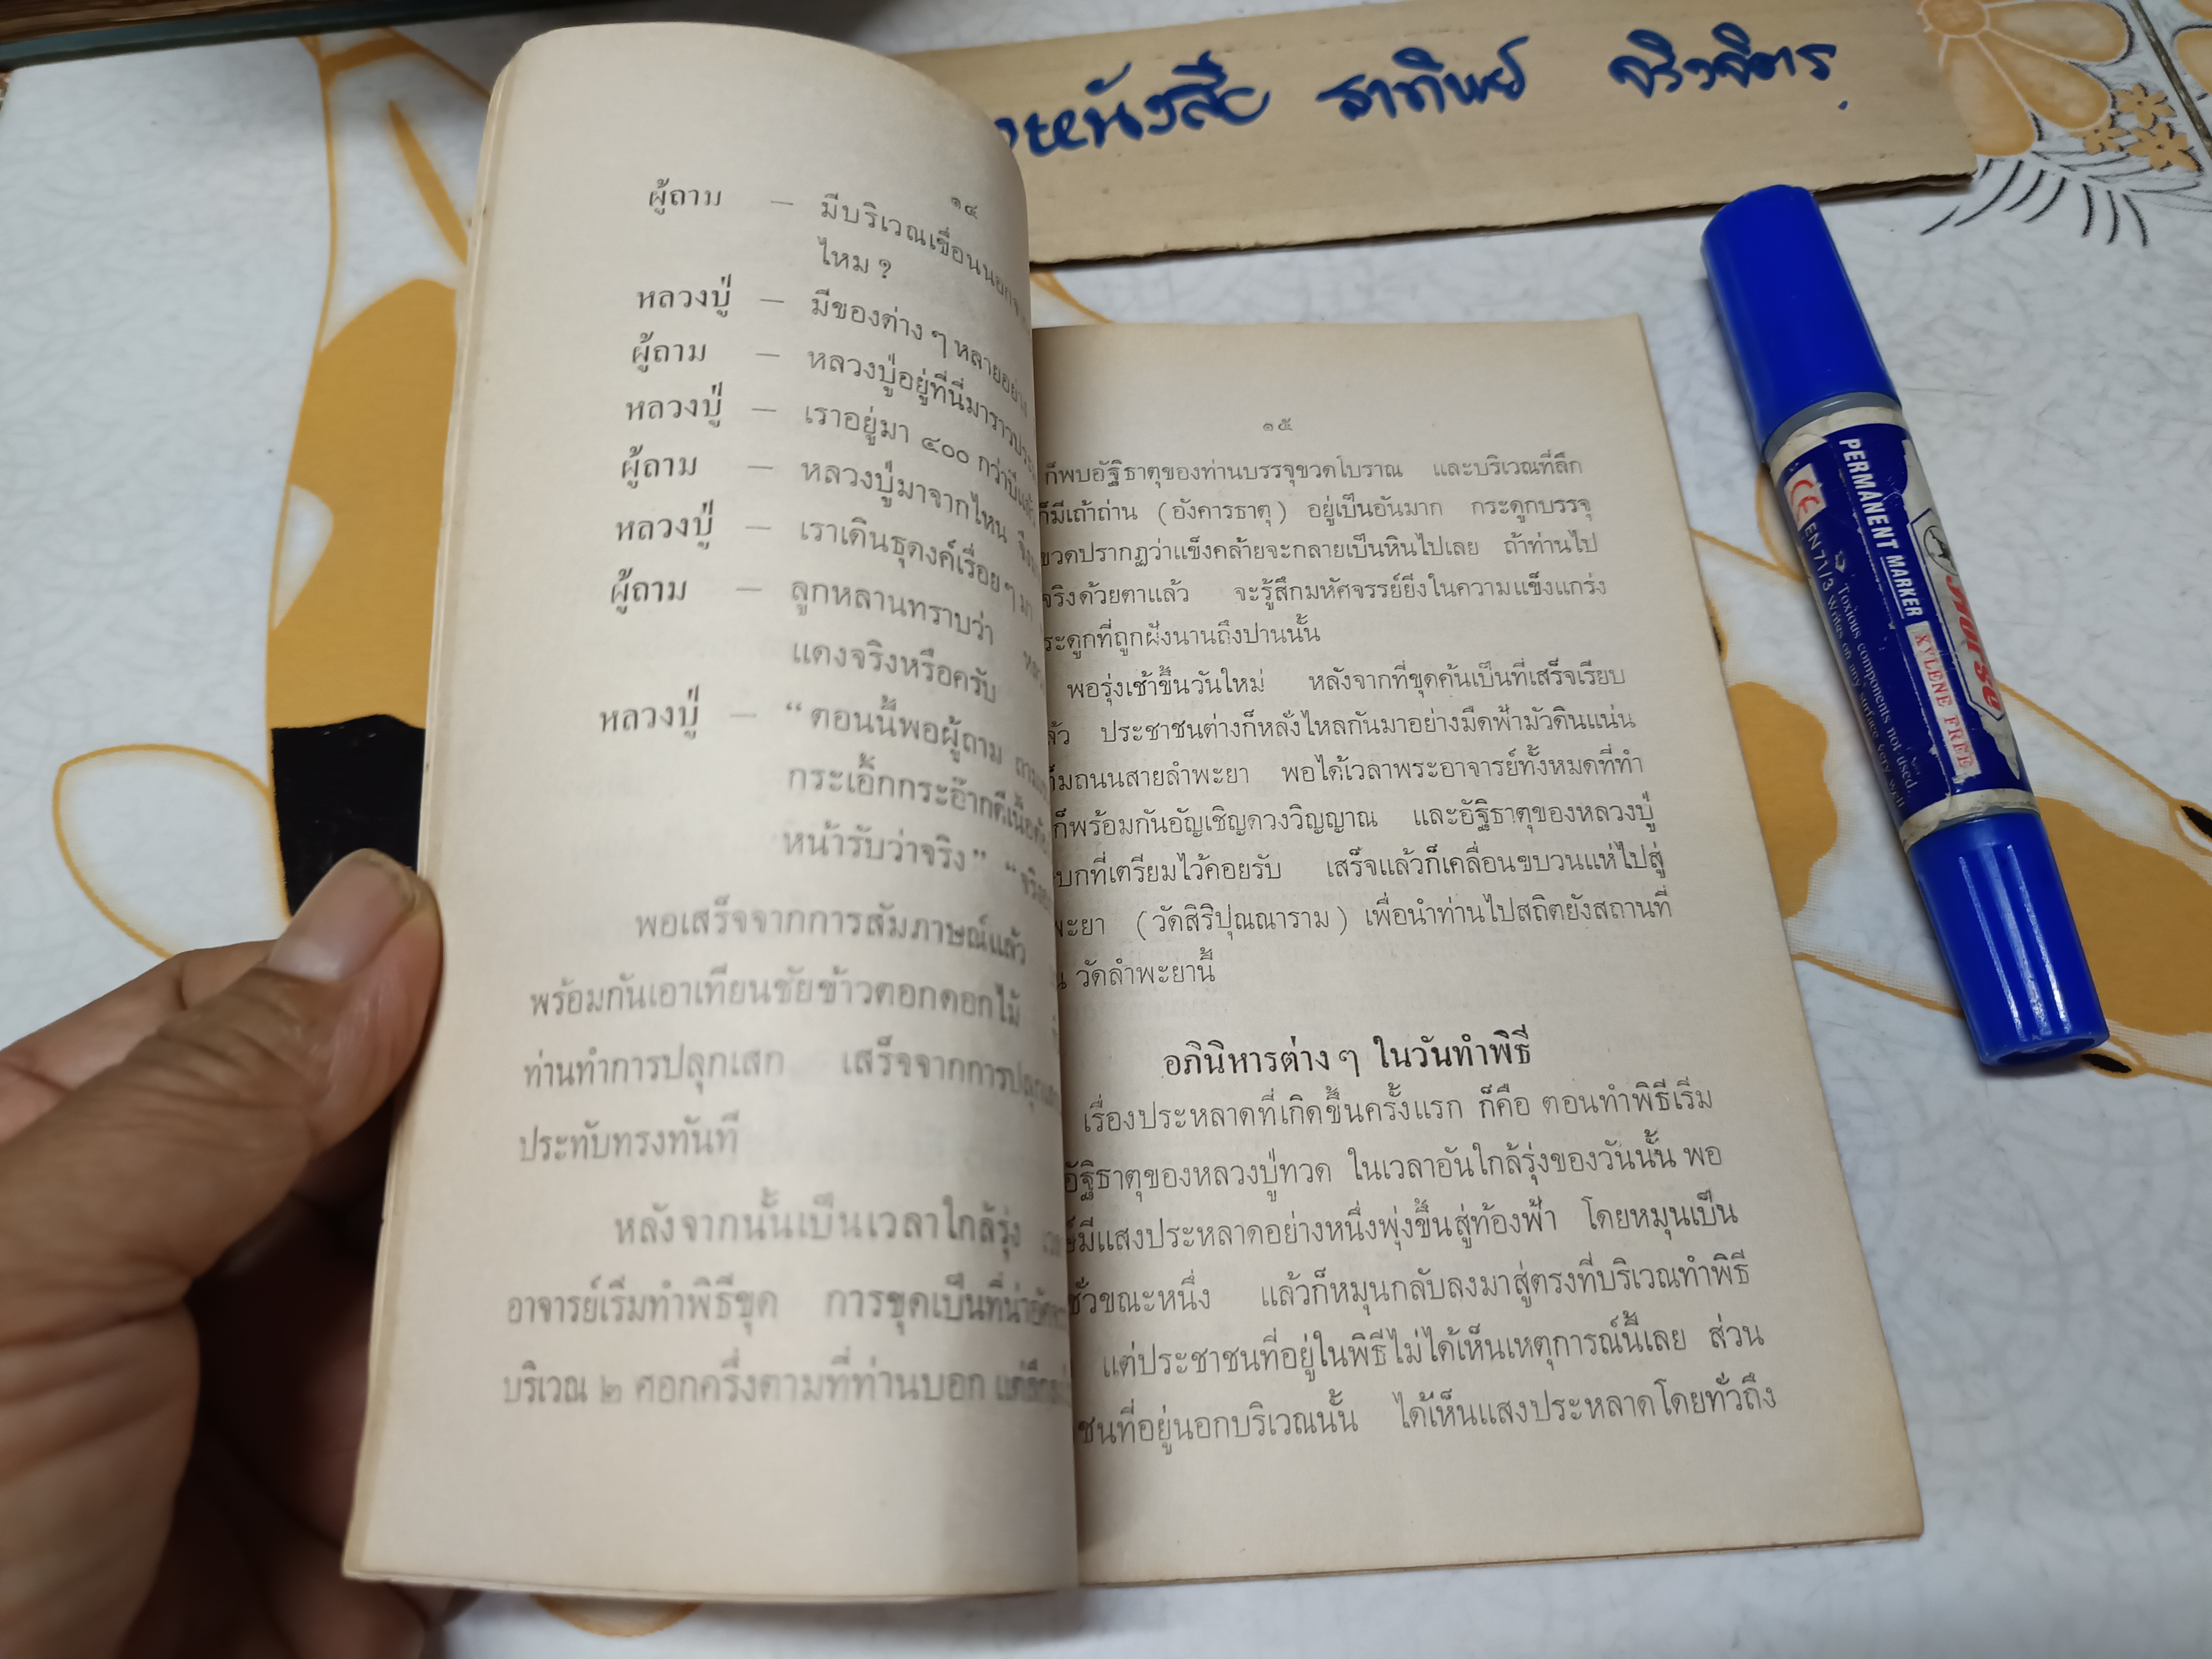 หนังสือ ธาทิพย์ จริวจิตร
๑๔
ผู้ถาม — มีบริเวณเขื่อนนอกจาก
ไหม ?
หลวงปู่ — มีของต่าง ๆ หลายอย่าง
ผู้ถาม — หลวงปู่อยู่ที่นี่มาราวประ
หลวงปู่ — เราอยู่มา ๔๐๐ กว่าปีแล้ว
ผู้ถาม — หลวงปู่มาจากไหน จึง
หลวงปู่ — เราเดินธุดงค์เรื่อย ๆ มา
ผู้ถาม — ลูกหลานทราบว่า หลว
แดงจริงหรือครับ
หลวงปู่ — “ ตอนนี้พอผู้ถาม ถาม
กระเอิ๊กกระอ๊ากดีเนื้อ
หน้ารับว่าจริง” “จริง
พอเสร็จจากการสัมภาษณ์แล้ว
พร้อมกันเอาเทียนชัยข้าวตอกดอกไม้
ท่านทำการปลุกเสก เสร็จจากการปลุกเสก
ประทับทรงทันที
หลังจากนั้นเป็นเวลาใกล้รุ่ง
อาจารย์เริ่มทำพิธีขุด การขุดเป็นที่น่า
บริเวณ ๒ ศอกครึ่งตามที่ท่านบอก แต่ลึก
๑๕
ก็พบอัฐิธาตุของท่านบรรจุขวดโบราณ และบริเวณที่ลึก
ก็มีเถ้าถ่าน ( อังคารธาตุ ) อยู่เป็นอันมาก กระดูกบรรจุ
ขวดปรากฏว่าแข็งคล้ายจะกลายเป็นหินไปเลย ถ้าท่านไป
จริงด้วยตาแล้ว จะรู้สึกมหัศจรรย์ยิ่งในความแข็งแกร่ง
ระดูกที่ถูกฝังนานถึงปานนั้น
พอรุ่งเช้าขึ้นวันใหม่ หลังจากที่ขุดค้นเป็นที่เสร็จเรียบ
ล้ว ประชาชนต่างก็หลั่งไหลกันมาอย่างมืดฟ้ามัวดินแน่น
ถนนสายลำพะยา พอได้เวลาพระอาจารย์ทั้งหมดที่ทำ
ก็พร้อมกันอัญเชิญดวงวิญญาณ และอัฐิธาตุของหลวงปู่
บกที่เตรียมไว้คอยรับ เสร็จแล้วก็เคลื่อนขบวนแห่ไปสู่
พะยา ( วัดสิริปุณณาราม ) เพื่อนำท่านไปสถิตยังสถานที่
วัดลำพะยานี้
อภินิหารต่าง ๆ ในวันทำพิธี
เรื่องประหลาดที่เกิดขึ้นครั้งแรก ก็คือ ตอนทำพิธีเริ่ม
อัฐิธาตุของหลวงปู่ทวด ในเวลาอันใกล้รุ่งของวันนั้น พอ
มีแสงประหลาดอย่างหนึ่งพุ่งขึ้นสู่ท้องฟ้า โดยหมุนเป็น
ชั่วขณะหนึ่ง แล้วก็หมุนกลับลงมาสู่ตรงที่บริเวณทำพิธี
แต่ประชาชนที่อยู่ในพิธีไม่ได้เห็นเหตุการณ์นี้เลย ส่วน
ชนที่อยู่นอกบริเวณนั้น ได้เห็นแสงประหลาดโดยทั่วถึง
Horse
PERMANENT MARKER XYLENE FREE
CE EN 71/3 Toxious components not used.
Writes on any surface very well